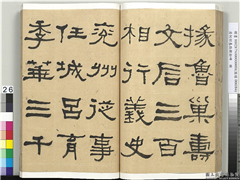 掾魯巢壽
文后三百
相行義史
兖州從事
任城呂育
季華三千
26